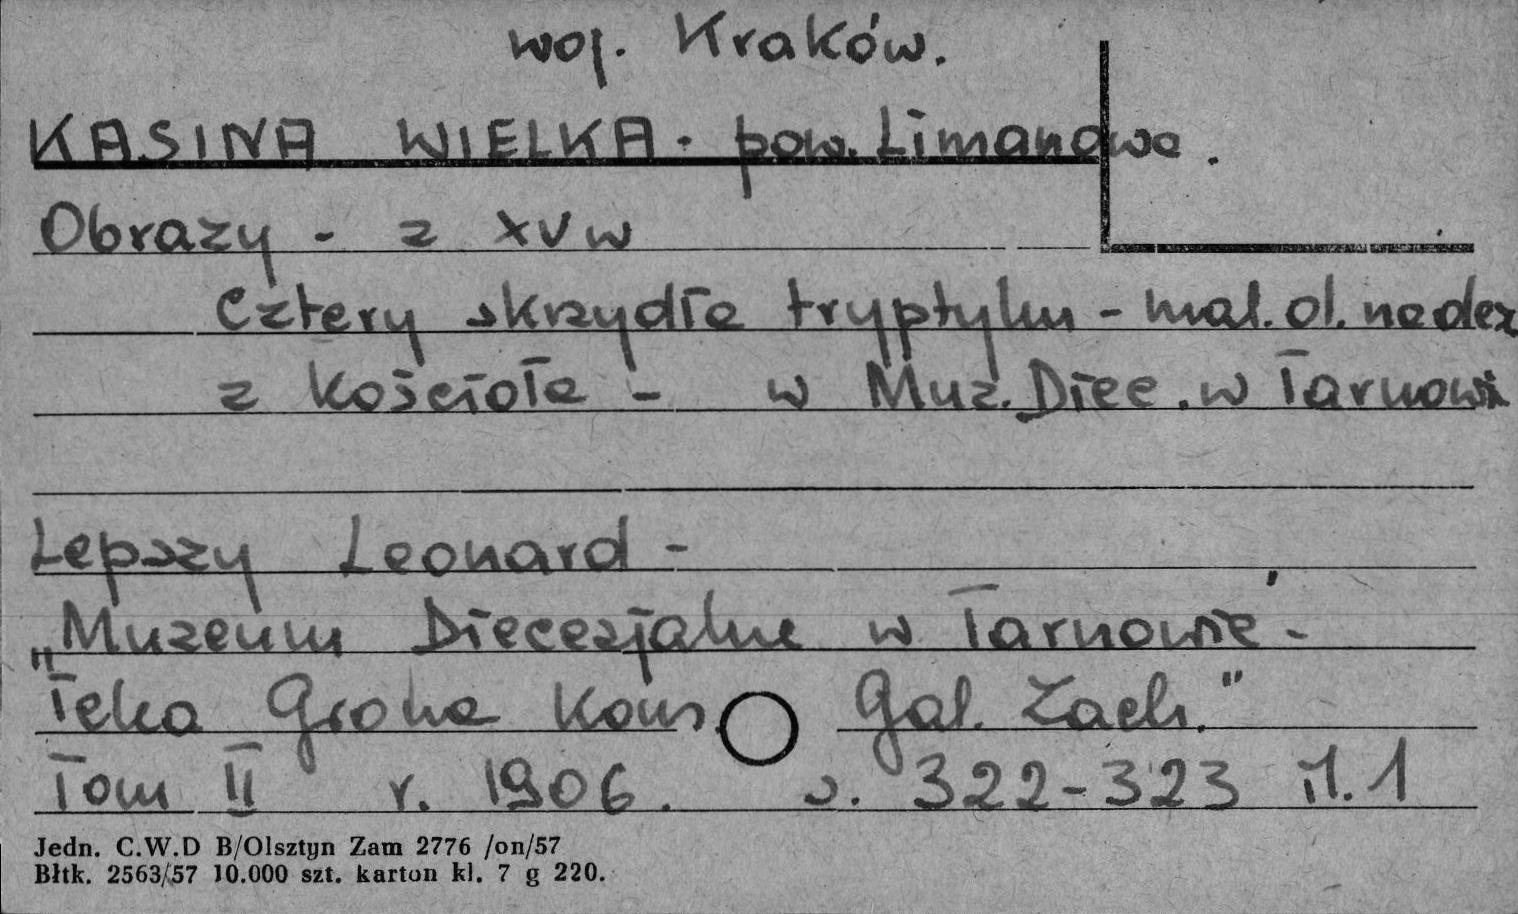 woj. Kraków.
KASINA WIELKA - pow. Limanowa.
Obrazy - z XV w
Cztery skrzydła tryptyku - mal. ol. na desz
z kościoła - w Muz. Diec. w Tarnowi
Lepszy Leonard -
„Muzeum Diecezjalne w Tarnowie' -
Teka Grona Kons. Gal. Zach."
Tom II r. 1906. s. 322-323 il. 1
Jedn. C.W.D B/Olsztyn Zam 2776 /on/57
Błtk. 2563/57 10.000 szt. karton kl. 7 g 220.